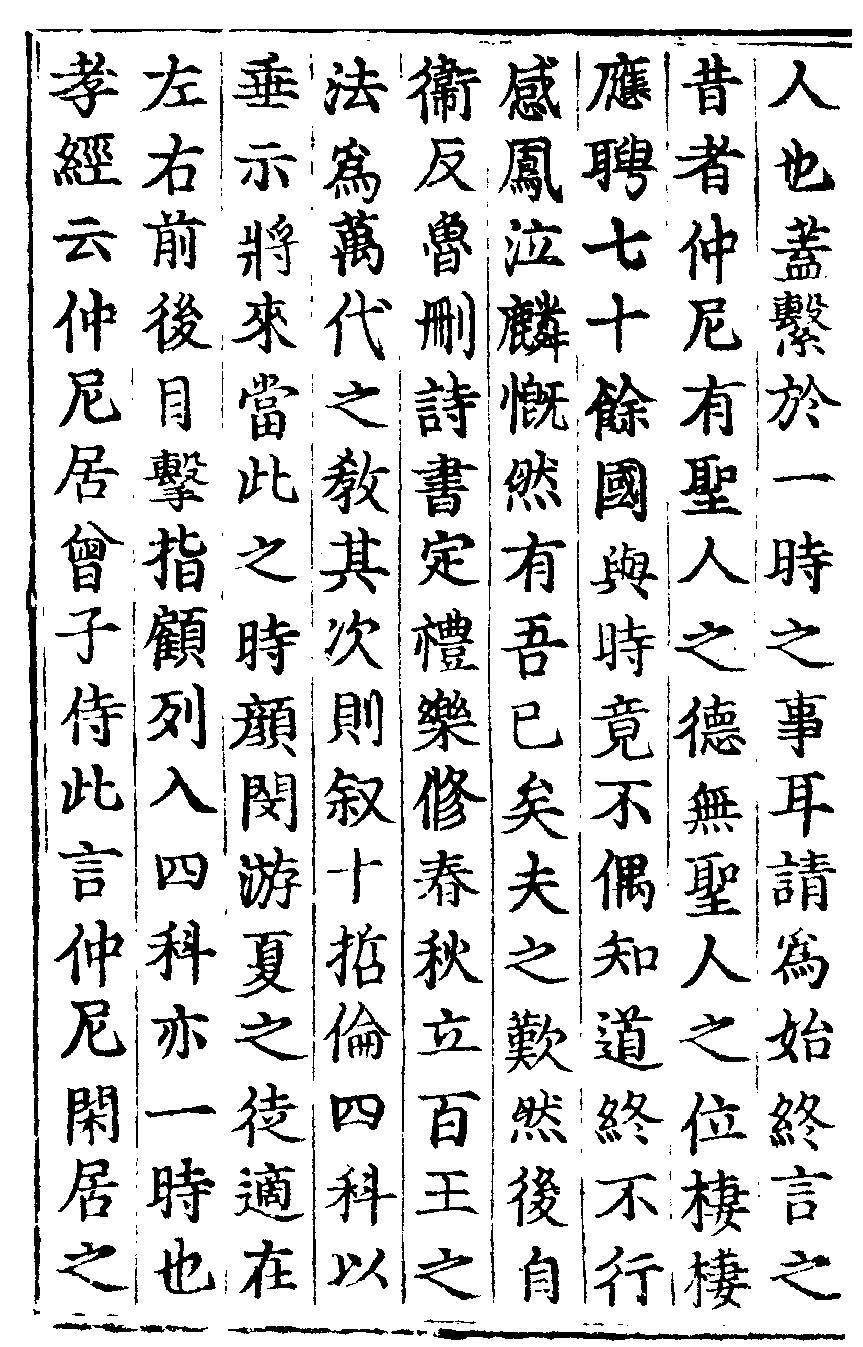 人也蓋繫於一時之事耳請爲始終言之
昔者仲尼有聖人之德無聖人之位棲棲
應聘七十餘國與時竟不偶知道終不行
感鳳泣麟慨然有吾已矣夫之歎然後自
衞反魯刪詩書定禮樂修春秋立百王之
法爲萬代之敎其次則叙十哲倫四科以
垂示將來當此之時顔閔游夏之徒適在
左右前後目擊指顧列入四科亦一時也
孝經云仲尼居曾子侍此言仲尼閑居之